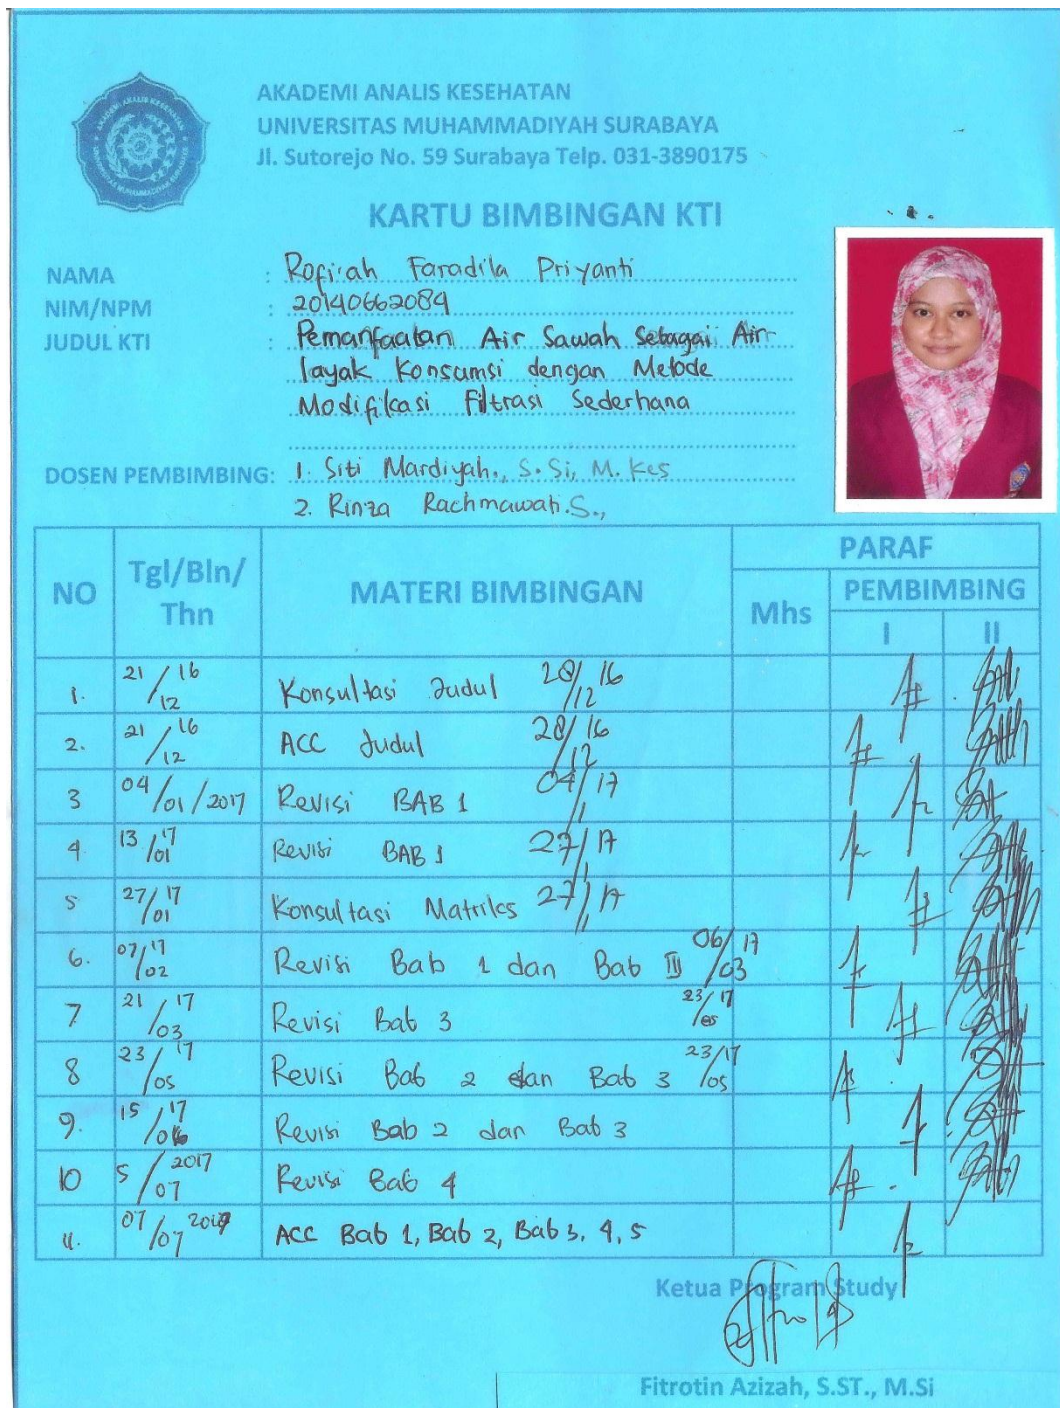 AKADEMI ANALIS KESEHATAN
UNIVERSITAS MUHAMMADIYAH SURABAYA
Jl. Sutorejo No. 59 Surabaya Telp. 031-3890175
KARTU BIMBINGAN KTI
NAMA : Rofi'ah Faradila Priyanti
NIM/NPM : 20140662084
JUDUL KTI : Pemanfaatan Air Sawah Sebagai Air
layak Konsumsi dengan Metode
Modifikasi Filtrasi Sederhana
DOSEN PEMBIMBING: 1. Siti Mardiyah., S.Si, M. Kes
2. Rinza Rachmawati.S.,
NO Tgl/Bln/Thn MATERI BIMBINGAN PARAF
Mhs PEMBIMBING
I II
1. 21/12 16 Konsultasi Judul 28/12 16
2. 21/12 16 ACC Judul 28/12 16
3 04/01/2017 Revisi BAB 1 04/1 17
4. 13/01 17 Revisi BAB 1 27/1 17
5 27/01 17 Konsultasi Matriks 27/1 17
6. 07/02 17 Revisi Bab 1 dan Bab II 06/03 17
7. 21/03 17 Revisi Bab 3 23/05 17
8 23/05 17 Revisi Bab 2 dan Bab 3 23/05 17
9. 15/06 17 Revisi Bab 2 dan Bab 3
10 5/07 2017 Revisi Bab 4
11. 07/07 2017 ACC Bab 1, Bab 2, Bab 3, 4, 5
Ketua Program Study
Fitrotin Azizah, S.ST., M.Si